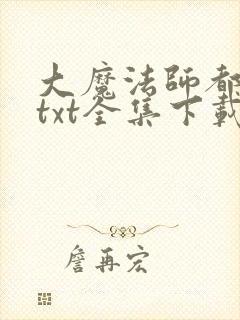 大魔法師都
txt全集下載
詹再宏